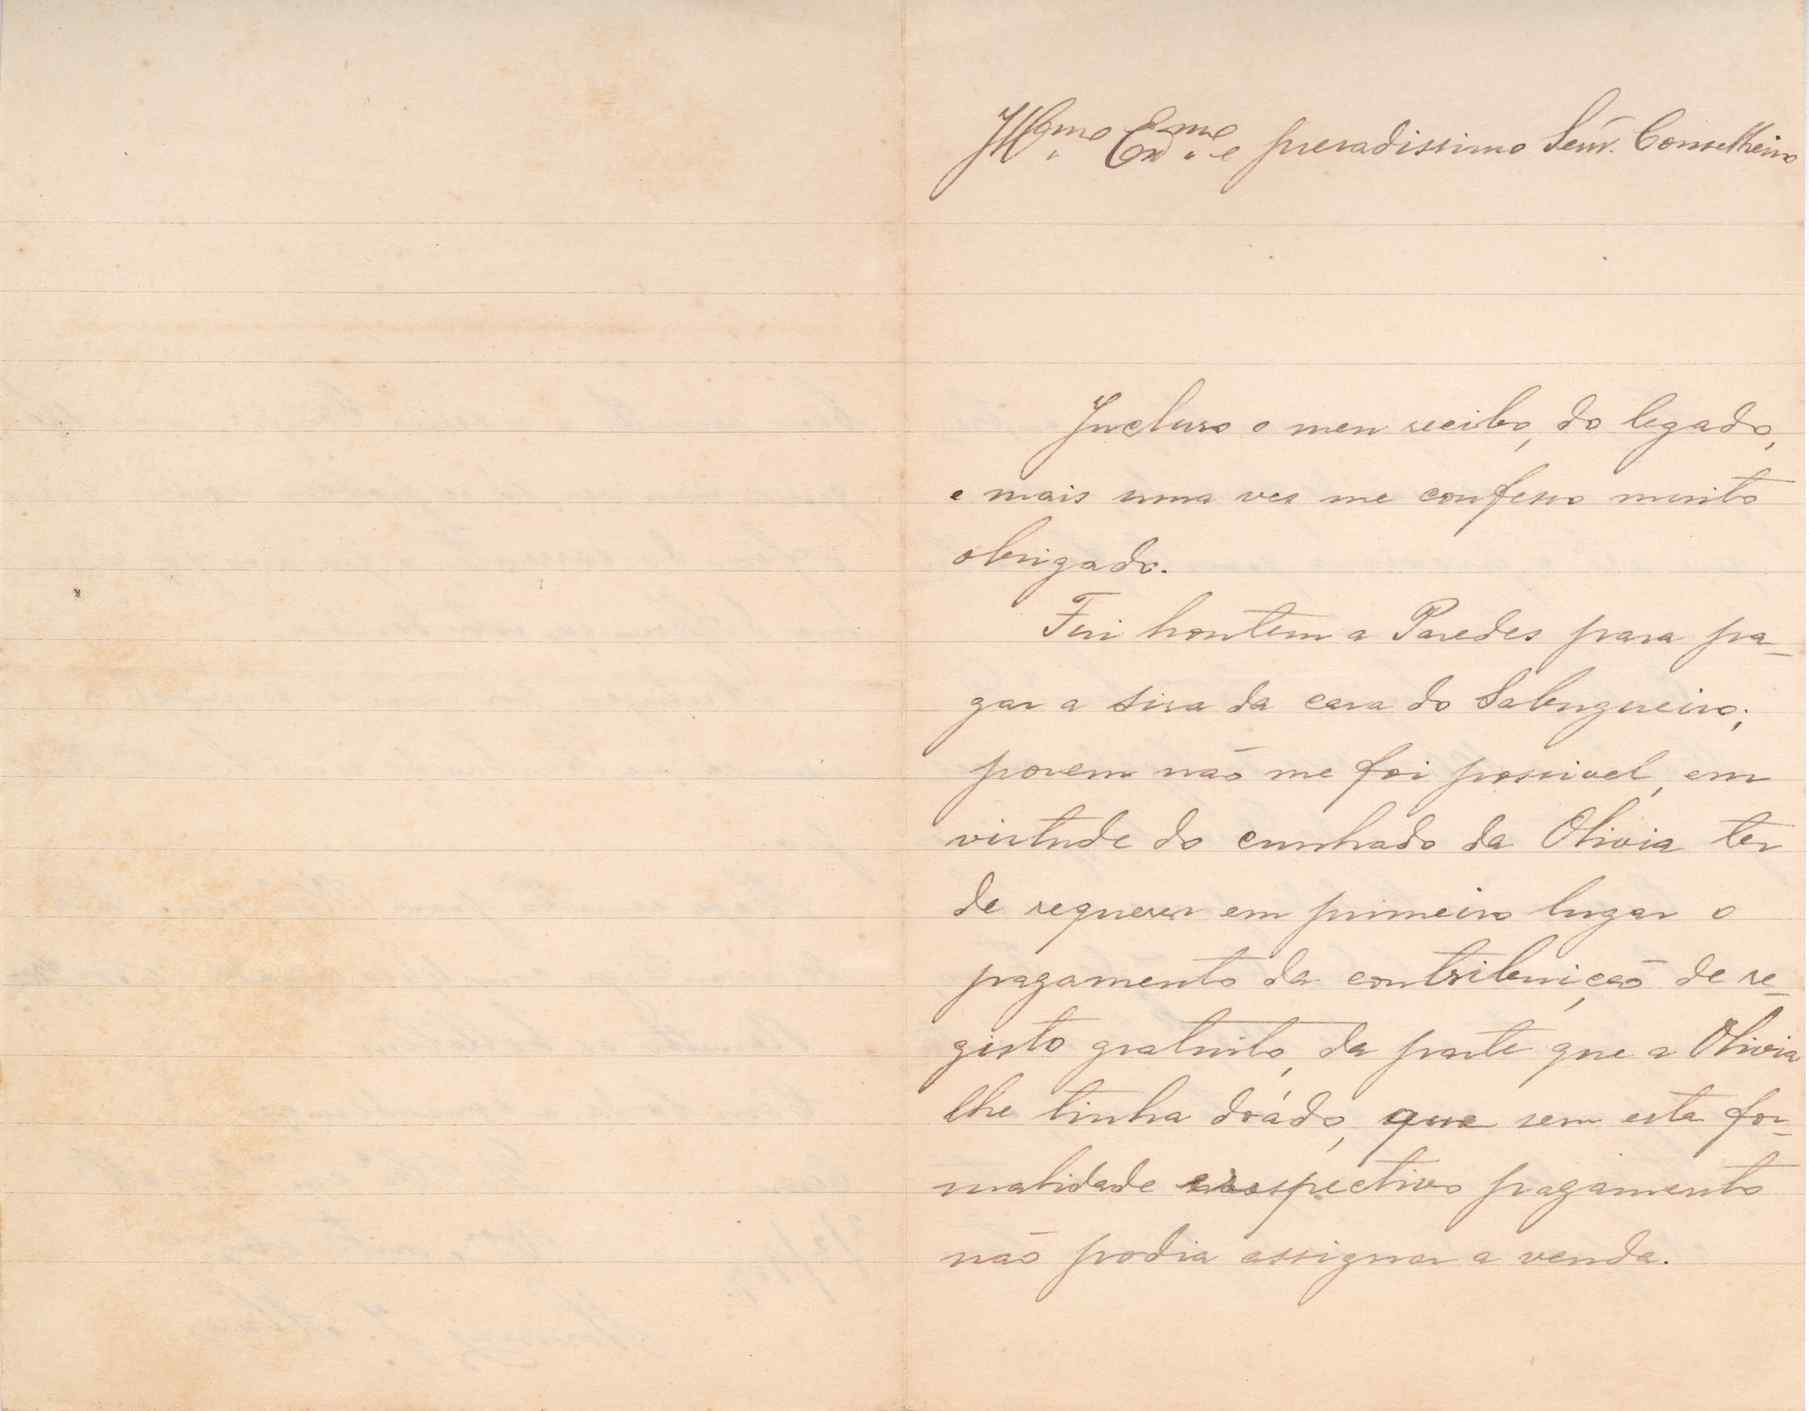 Ill.mo Ex.mo e presadissimo Senr. Conselheiro
Incluso o meu recibo, do legado,
e mais uma ves me confesso muito
obrigado.
Fui hontem a Paredes para pa-
gar a sisa da casa do Sabugueiro;
porem não me foi possivel, em
virtude do cunhado da Olivia ter
de requerer em primeiro lugar o
pagamento da contribuição de re-
gisto gratuito, da parte que a Olivia
lhe tinha doádo, que sem esta for-
malidade e respectivo pagamento
não podia assignar a venda.